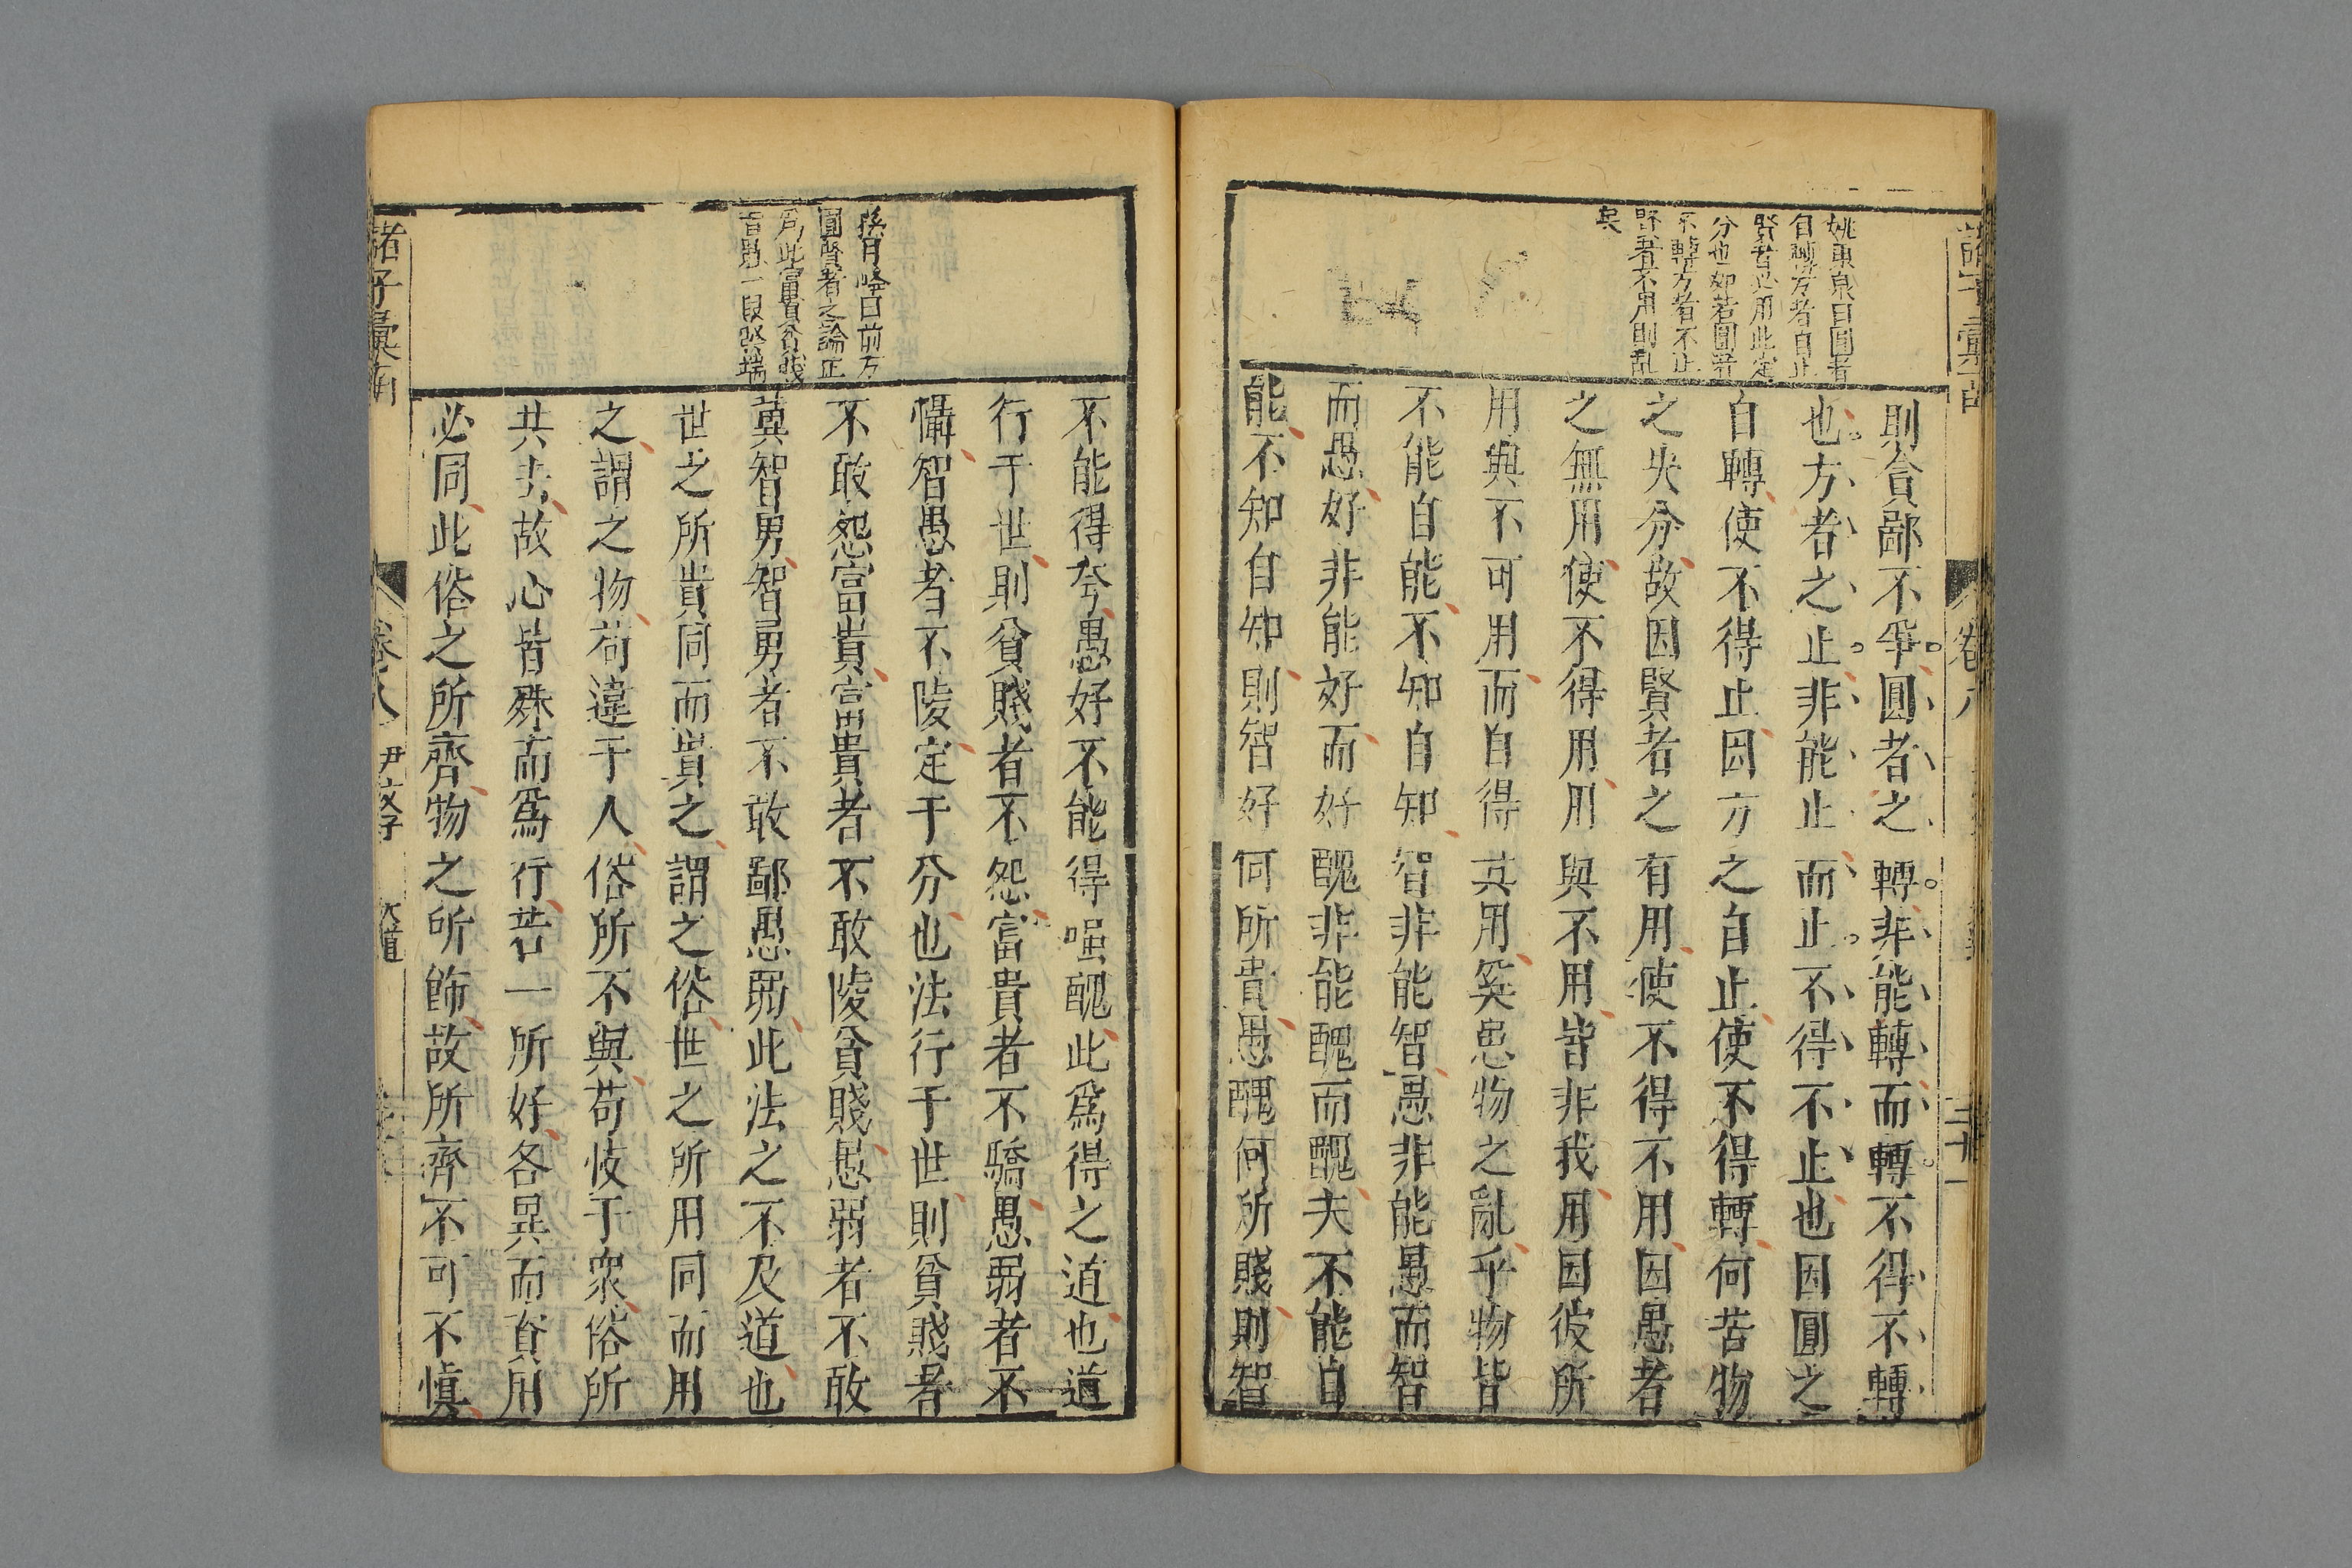 姚東泉曰圓者
自轉方者自止
賢者必用此定
分也如若圓者
不轉方者不止
賢者不用則乱
矣
則貪鄙不爭圓者之轉非能轉而轉不得不轉
也方者之止非能止而止不得不止也因圓之
自轉使不得止因方之自止使不得轉何苦物
之失分故因賢者之有用使不得不用因愚者
之無用使不得用用與不用皆非我用因彼所
用與不可用而自得其用奚患物之亂乎物皆
不能自能不知自知智非能智愚非能愚而智
而愚好非能好而好醜非能醜而醜夫不能自
能不知自知則智好何所貴愚醜何所賤則智
不能得夸愚好不能得嗤醜此爲得之道也道
行于世則貧賤者不怨富貴者不驕愚弱者不
懾智愚者不陵定于分也法行于世則貧賤者
不敢怨富貴富貴者不敢陵貧賤愚弱者不敢
冀智男智勇者不敢鄙愚弱此法之不及道也
世之所貴同而貴之謂之俗世之所用同而用
之謂之物苟違于人俗所不與苟忮于衆俗所
共去故心皆殊而爲行若一所好各異而資用
必同此俗之所齊物之所飾故所齊不可不慎
孫月峰曰前方
圓賢者之論正
爲此富貴貧賤
智愚一段發端
諸子彙函
卷八
尹文子
大道